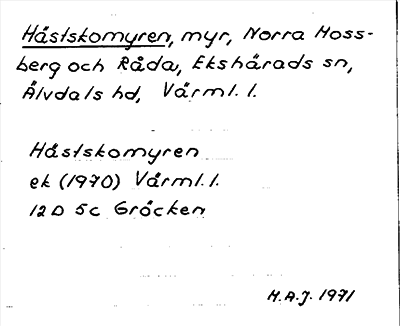 Hästskomyren, myr, Norra Moss-
berg och Råda, Ekshärads sn,
Älvdals hd, Värml. l.
Hästskomyren
ek (1970) Värml. l.
12D 5c Gräcken
H.A.J. 1971